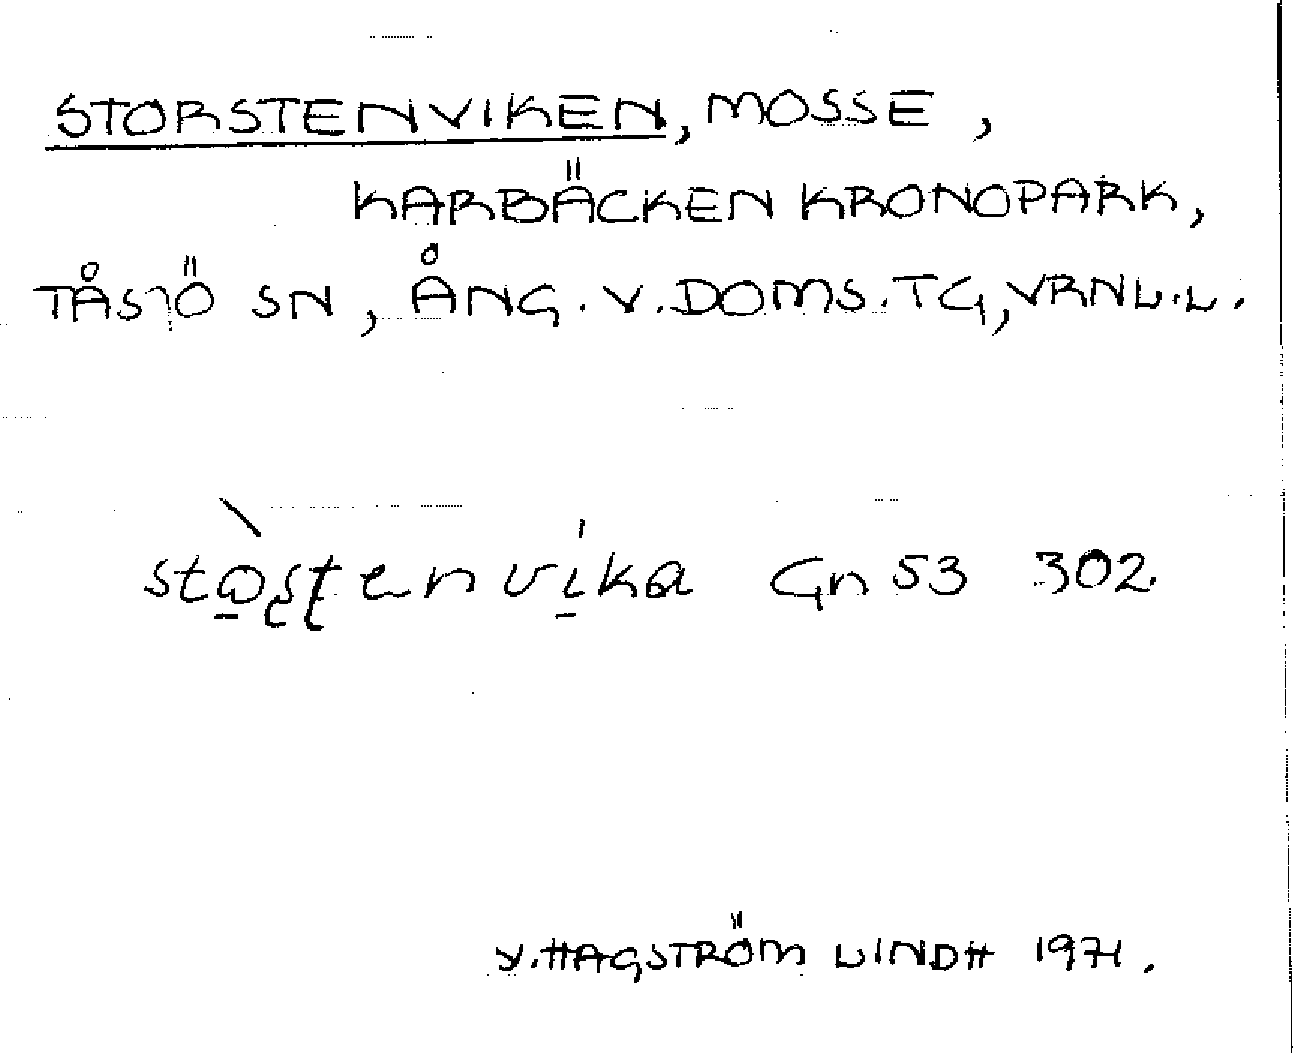 STORSTENVIKEN, MOSSE,
KARBÄCKEN KRONOPARK,
TÅSJÖ SN, ÅNG. V. DOMS. TG, VRNL.L.
Gn 53 302.
Y. HAGSTRÖM LINDH 1971.